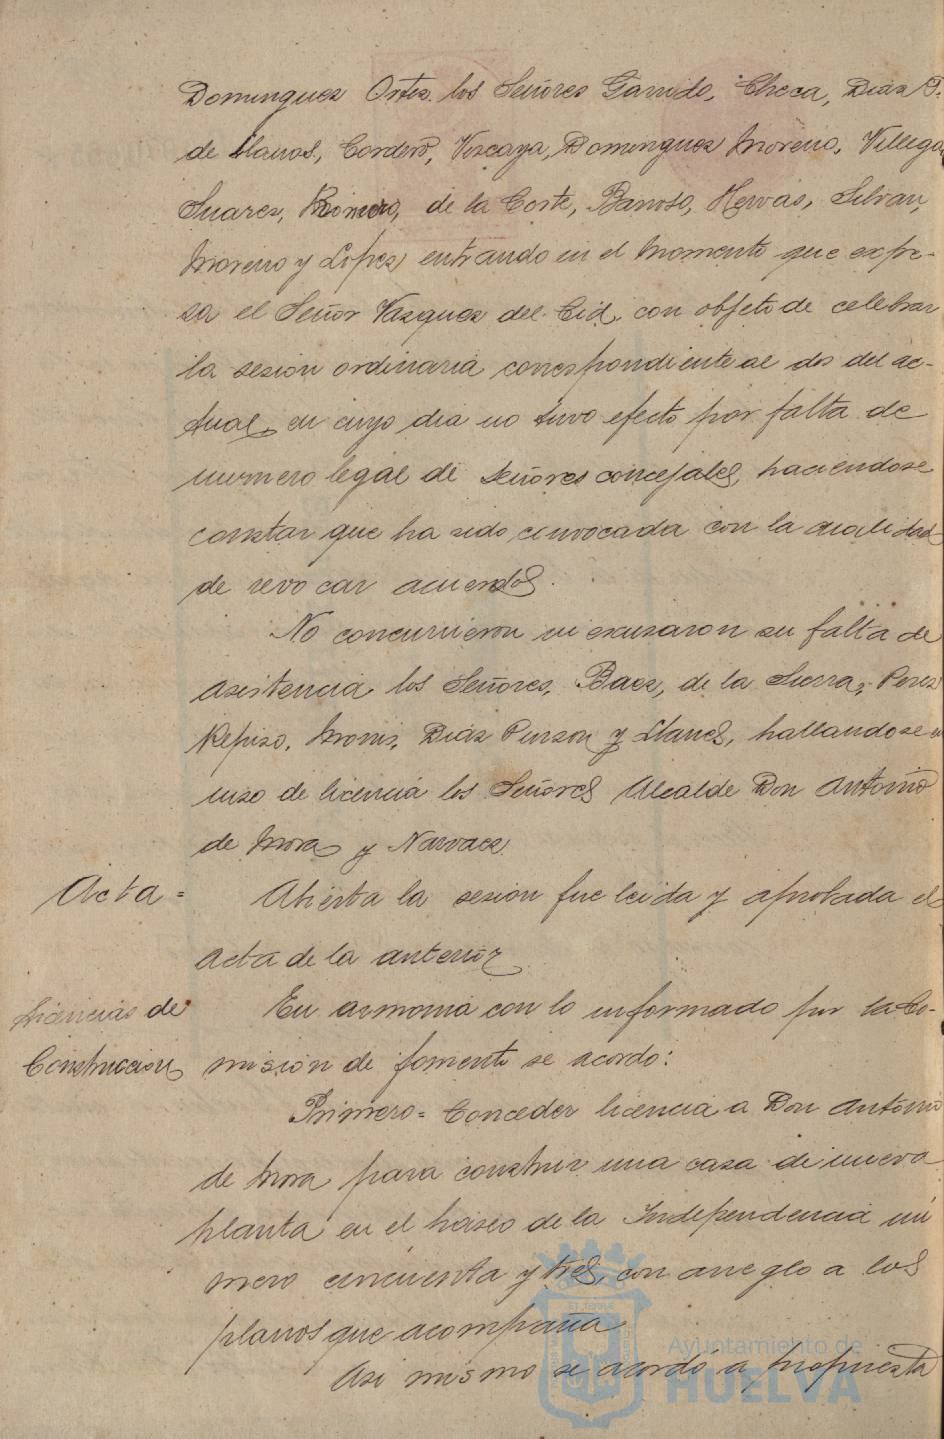 Dominguez Ortiz. los Señores Garrido, Checa, Diaz P.
de Llanos, Cordero, Vizcaya, Dominguez Moreno, Villegas
Suarez, Romero, de la Corte, Barroso, Hervas, Silvan,
Moreno y Lopez, entrando en el momento que expre-
sa el Señor Vazquez del Cid, con objeto de celebrar
la sesion ordinaria correspondiente al dos del ac-
tual, en cuyo dia no tuvo efecto por falta de
numero legal de Señores concejales, haciendose
constar que ha sido convocada con la cualidad
de revocar acuerdos.
No concurrieron ni escusaron su falta de
asistencia los Señores, Baez, de la Sierra, Perez
Repiso, Monis, Diaz Punzon y Llanes, hallandose en
uzo de licencia los Señores Alcalde Don Antonio
de Mora y Narvaez.
Acta =
Abierta la sesion fue leida y aprobada el
acta de la anterior
Licencias de
Construccion
En armonia con lo informado por la Co-
mision de fomento se acordo:
Primero = Conceder licencia a Don Antonio
de Mora para construir una casa de nueva
planta en el paseo de la Independencia nú
mero cincuenta y tres, con arreglo a los
planos que acompaña
Asi mismo se acordó a propuesta
Ayuntamiento de
HUELVA